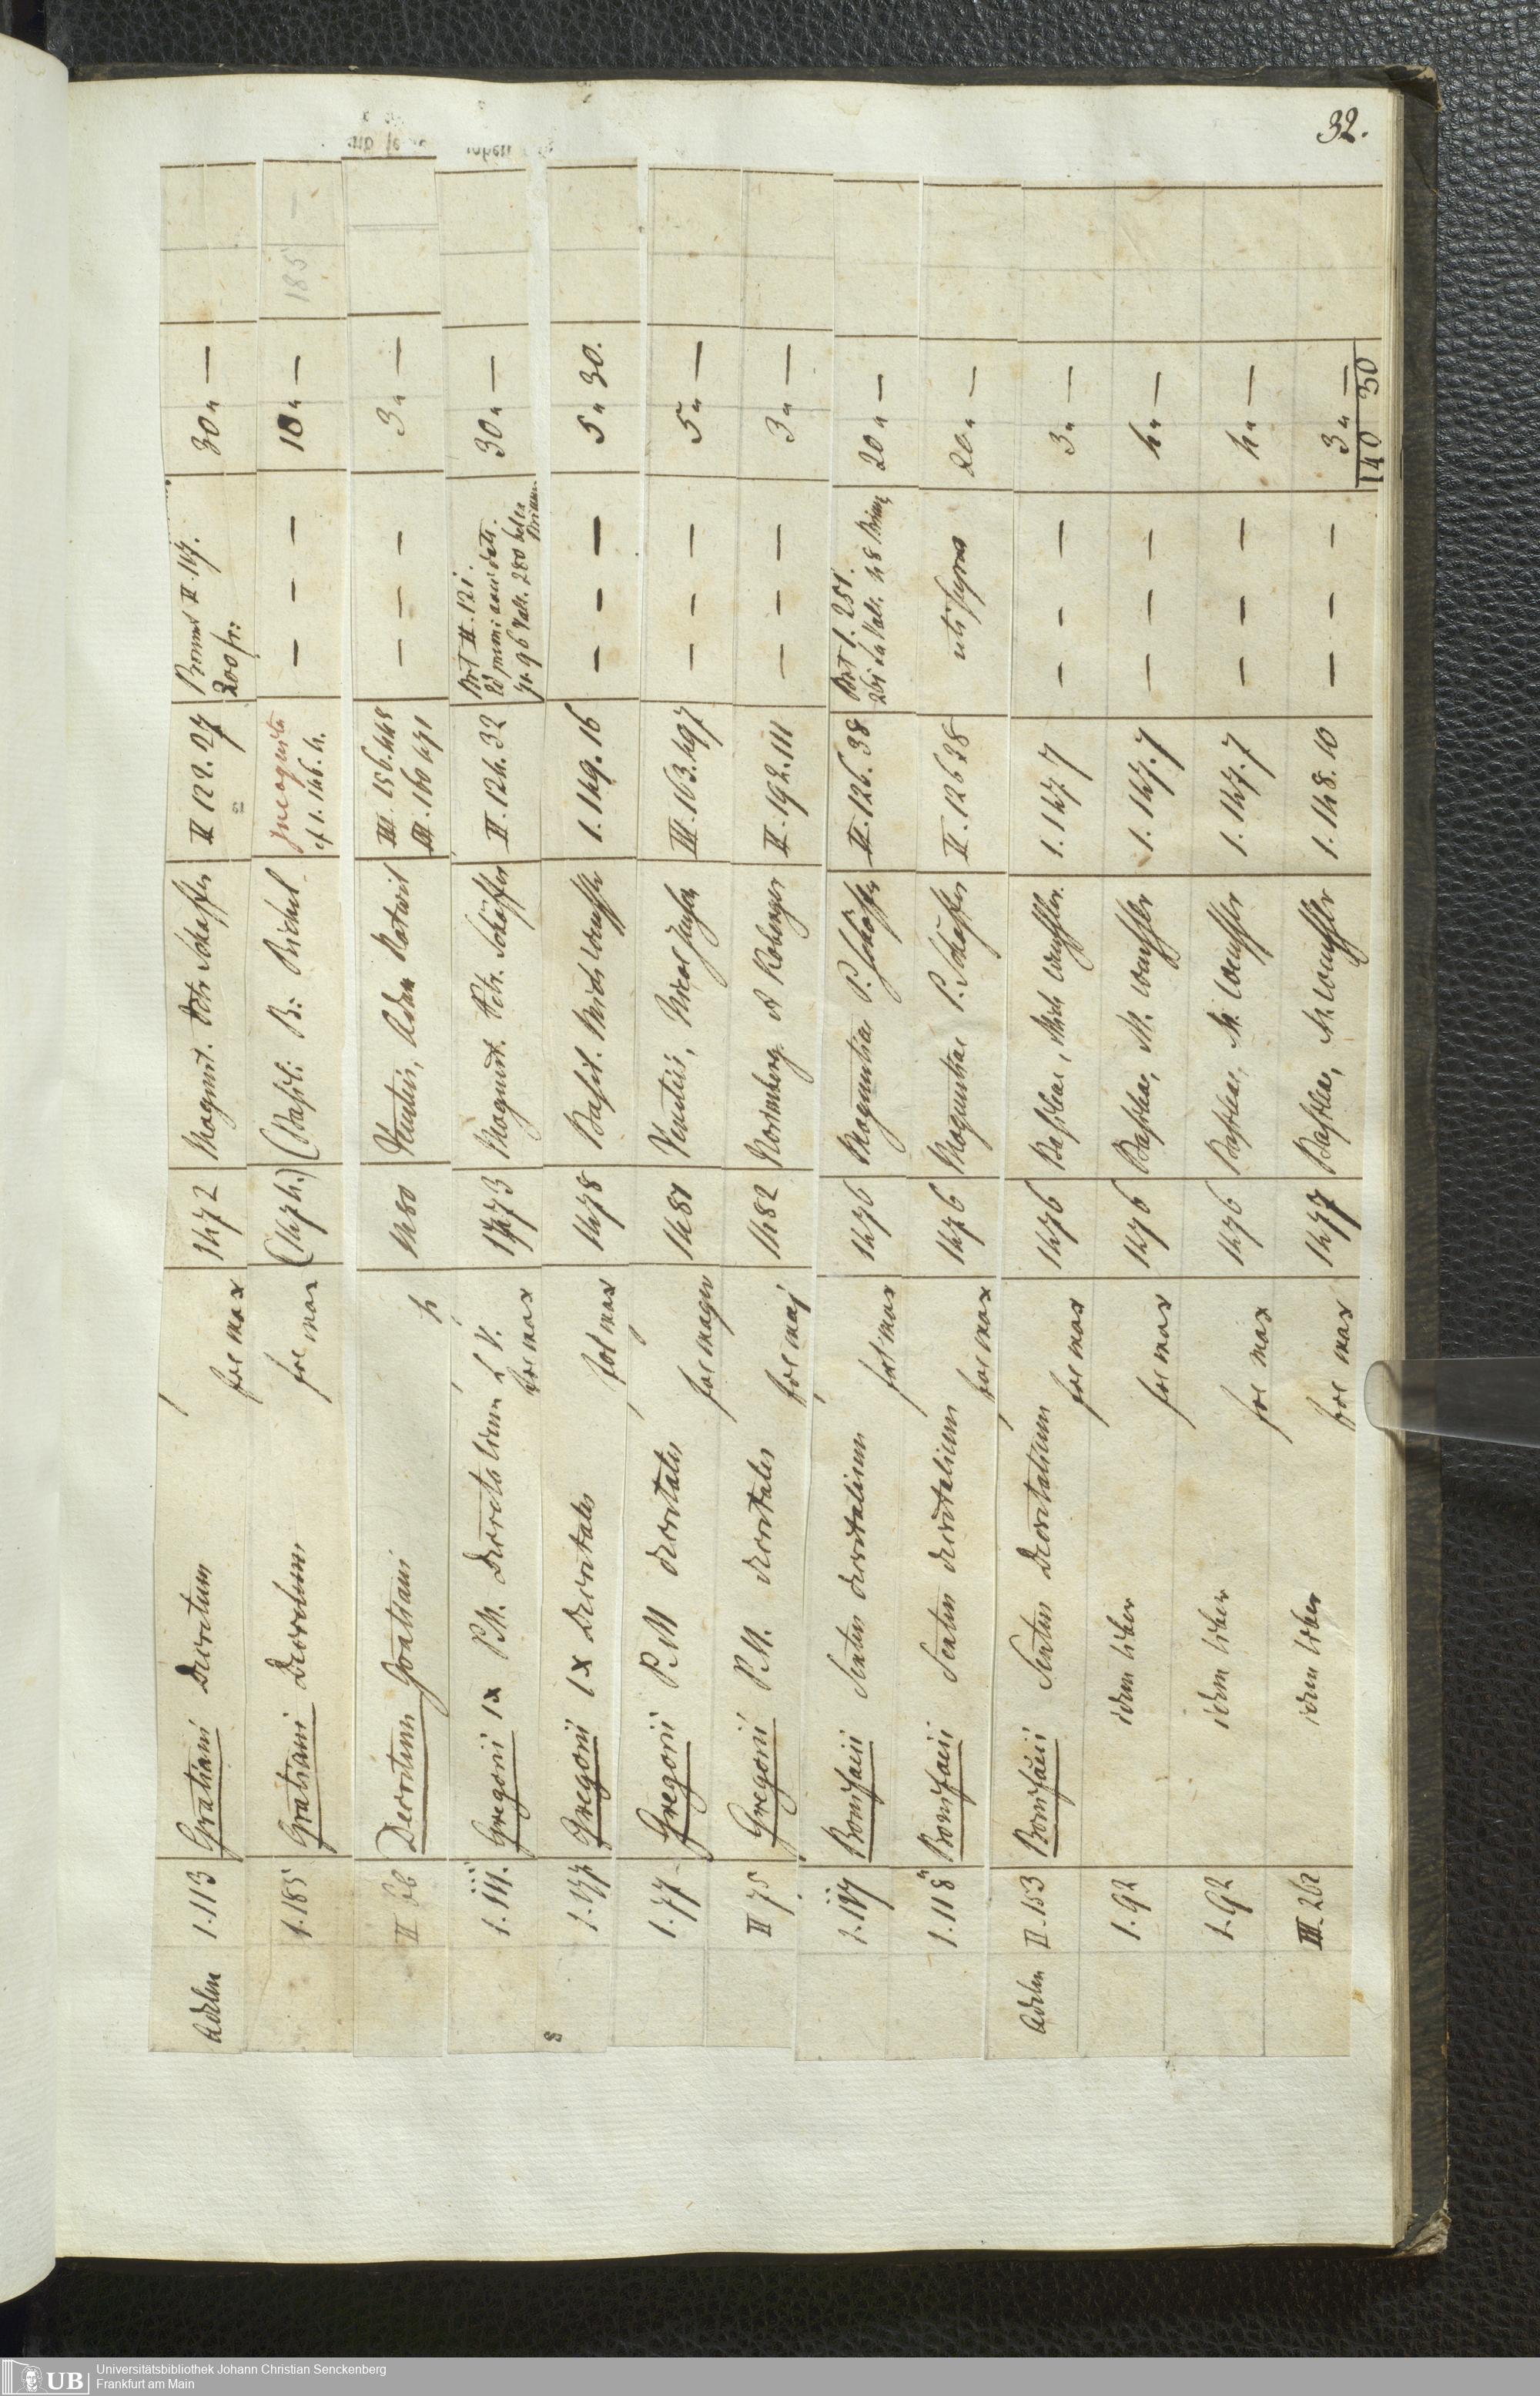 32.
Adelm I.113 Gratiani Decretum fol max 1472 Mogunt. Petr Schoffer II 122.27 Brunet II.119. 200 fr: 30 „ —
I.185 Gratiani Decretum fol max (1474.) (Basil: B: Richel Incognita cf I. 146. 4. — — — 10 „ — 185 —
II 66 Decretum Gratiani 4 1480 Venetiis, Adam Rotwil III. 156.448 III. 160 471 — — — 3 „ —
I. 111. Gregorii IX P.M. Decretalium L V. fol max 1473 Mogunt. Petr. Schoffer II. 124. 32 Brt II. 121. 30 „ —
I. 177 Gregorii IX Decretales fol max 1478 Basil. Mich Wenssler I. 149. 16 — — — 5 „ 30.
I. 77 Gregorii P.M decretales fol major 1481 Venetiis, Nicol Jenson III. 163. 497 — — — 5 „ —
II 75 Gregorii P.M. decretales fol maj 1482 Norimberg A Koberger II. 192. 111 — — — 3 „ —
I. 117 Bonifacii Sextus decretalium fol max 1476 Moguntiae P. Schöffer II. 126. 38 Brt I. 251. 20 „ —
I. 118 Bonifacii Sextus decretalium fol max 1476 Moguntiae P. Schöffer II. 126 38 uti supra 20 „ —
Adelm II. 153 Bonifacii Sextus Decretalium fol max 1476 Basileae, Mich Wenssler. I. 147. 7 — — — 3 „ —
I. 92 idem liber fol max 1476 Basileae, M. Wenssler I. 147. 7 — — — 4 „ —
I. 92 idem liber fol max 1476 Basileae, M. Wenssler I. 147. 7 — — — 4 „ —
III. 262 idem liber fol max 1477 Basileae, M. Wenssler I. 148. 10 — — — 3 „ —
140 30
UB
Universitätsbibliothek Johann Christian Senckenberg
Frankfurt am Main